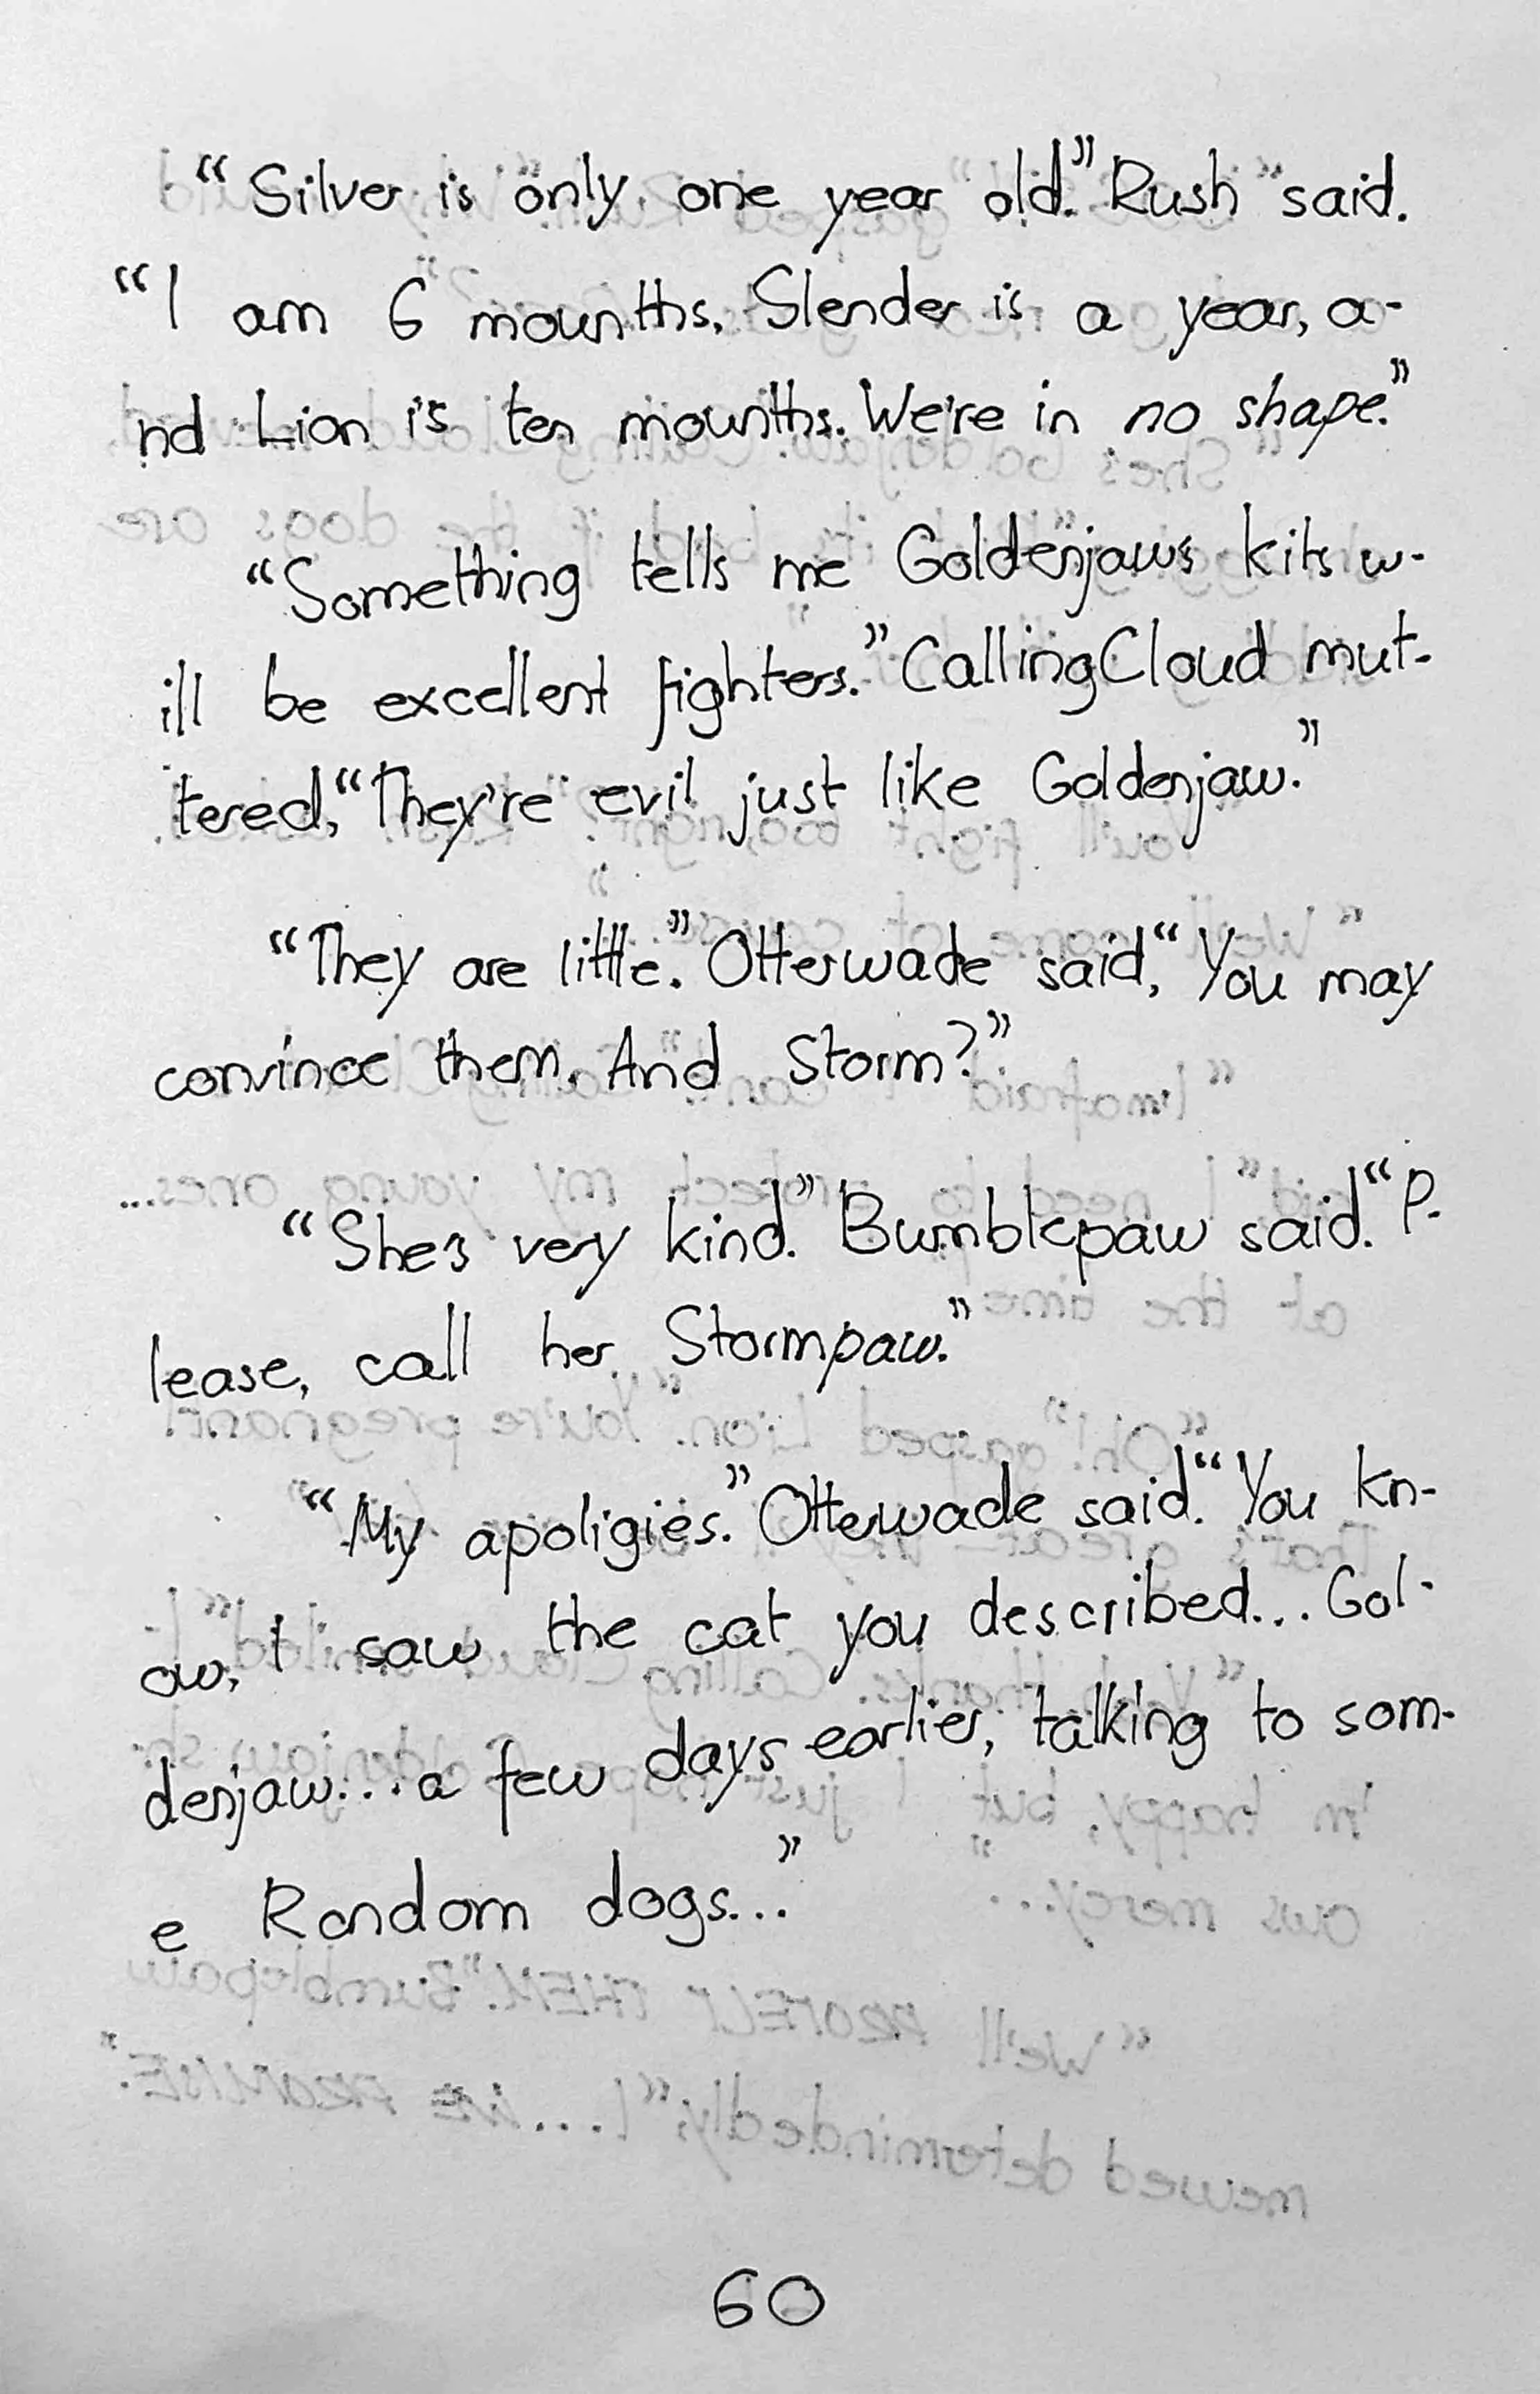 “Silver is only one year old.” Rush said.
“I am 6 mounths, Slender is a year, a-
nd Lion is ten mounths. We're in no shape.”
“Something tells me Goldenjaws kits w-
ill be excellent fighters.” CallingCloud mut-
tered, “They're evil just like Goldenjaw.”
“They are little.” Otterwade said, “You may
convince them. And Storm?”
“She's very kind.” Bumblepaw said. “P-
lease, call her Stormpaw.”
“My apoligies.” Otterwade said. “You kn-
ow, I saw the cat you described... Gol-
denjaw... a few days earlier, talking to som-
e Random dogs...”
60